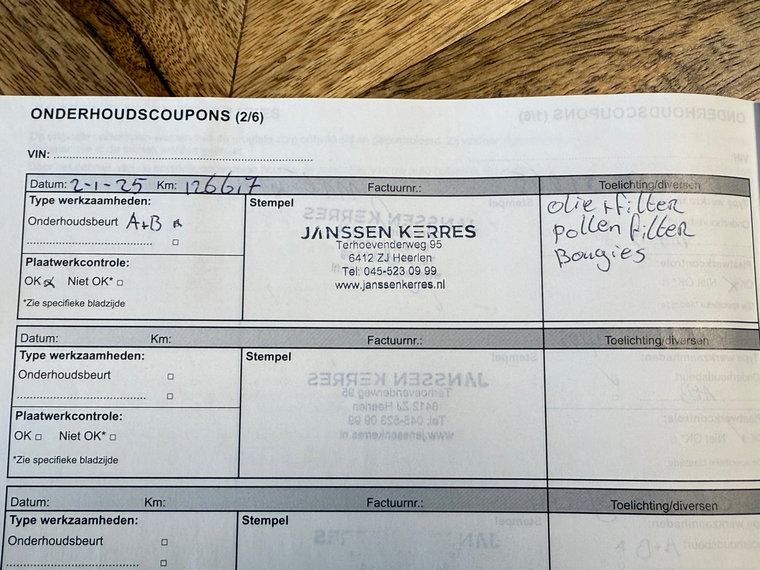 ONDERHOUDSCOUPONS (2/6)
VIN:
Datum: 2-1-25 Km: 126617 Factuurnr.: Toelichting/diversen
Type werkzaamheden:
Onderhoudsbeurt A+B
Plaatwerkcontrole:
OK Niet OK*
*Zie specifieke bladzijde
Stempel
JANSSEN KERRES
Terhoevenderweg 95
6412 ZJ Heerlen
Tel: 045-523 09 99
www.janssenkerres.nl
olie + filter
pollen filter
Bougies
Datum: Km: Factuurnr.: Toelichting/diversen
Type werkzaamheden:
Onderhoudsbeurt
Plaatwerkcontrole:
OK Niet OK*
*Zie specifieke bladzijde
Stempel
Datum: Km: Factuurnr.: Toelichting/diversen
Type werkzaamheden:
Onderhoudsbeurt
Stempel